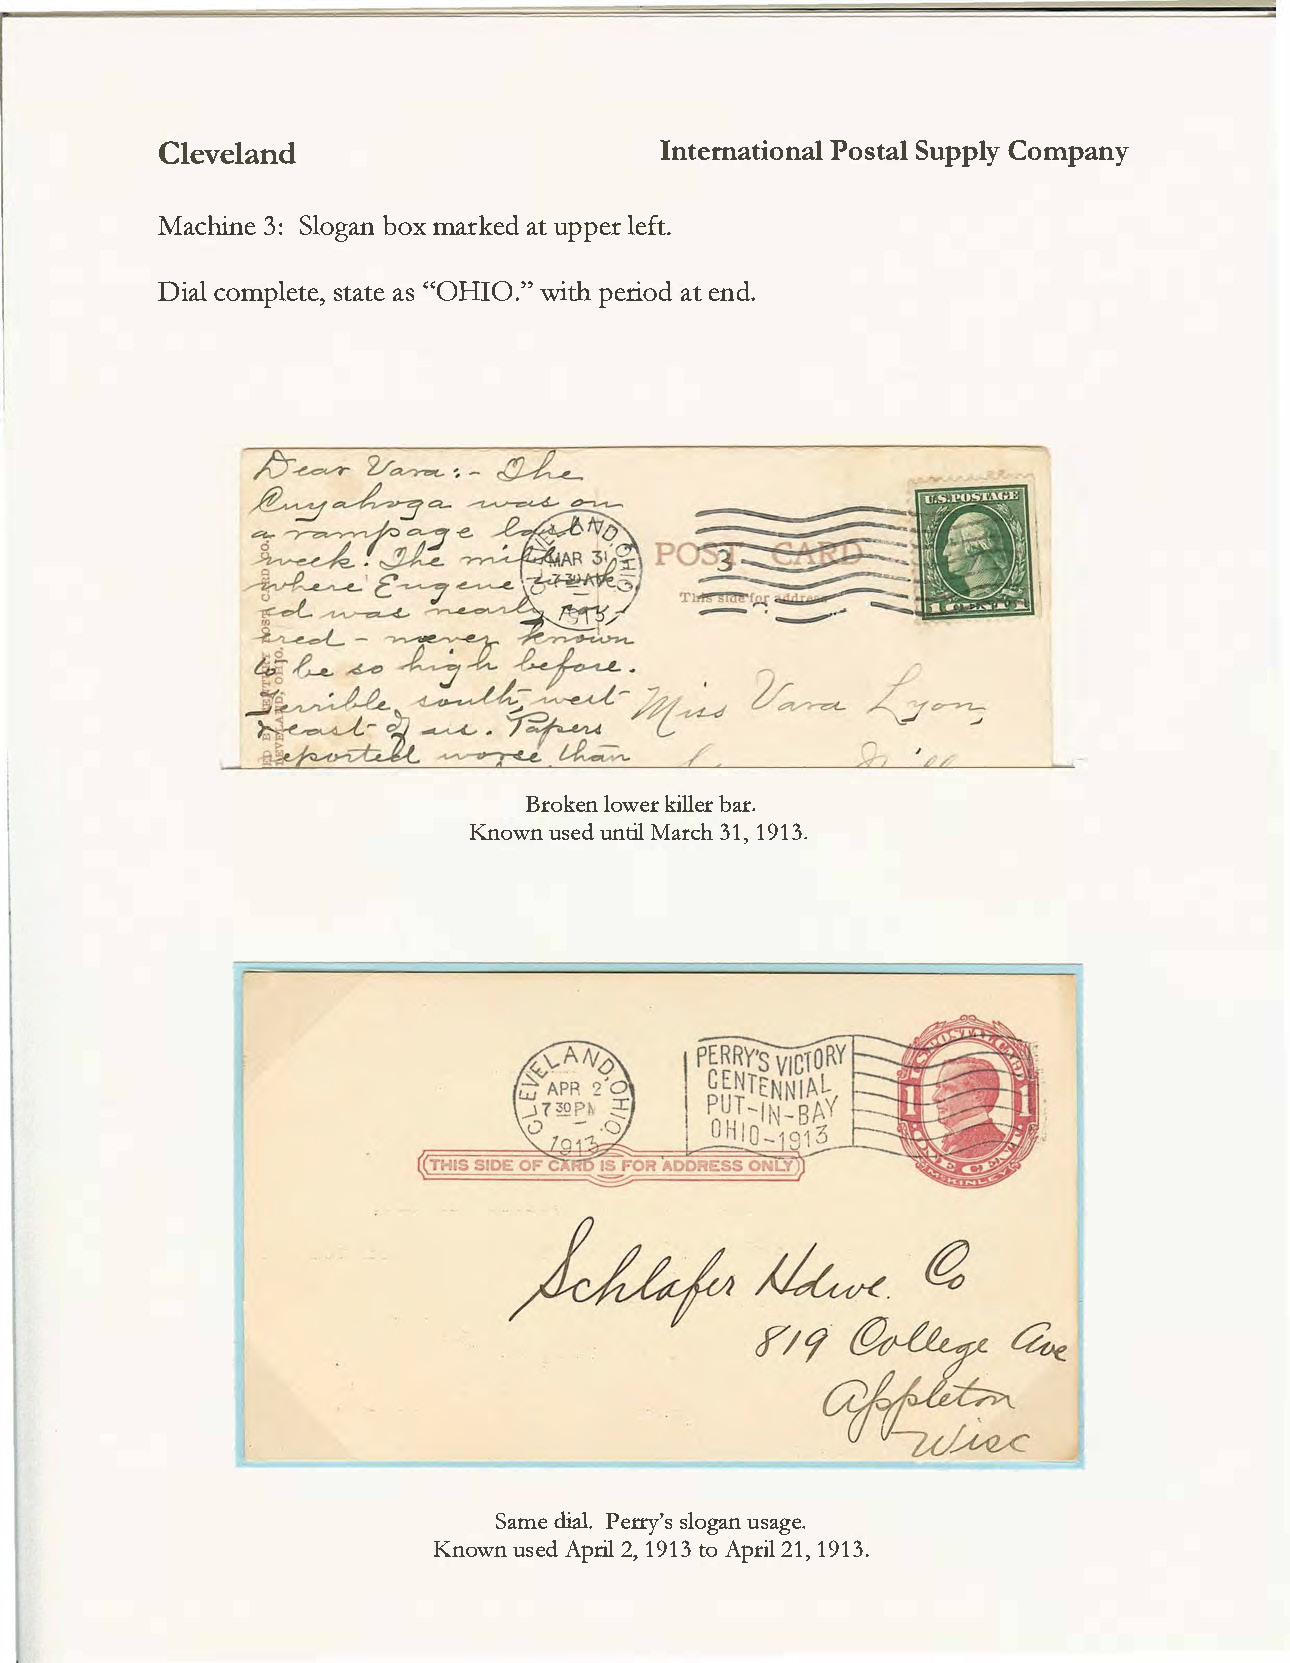 Cleveland
International Postal Supply Company
Machine 3: Slogan box marked at upper left.
Dial complete, state as “OHIO.” with period at end.
Dear Vara:- The
Cuyahoga was on
a rampage last
week. The mill
where Eugene
ed was nearly
ered - never known
to be so high before.
Terrible, south, west
& east of us. Papers
reported worse than
CLEVELAND, OHIO.
MAR 31
7 30 AM
1913
POST CARD
This side for address
3
U.S. POSTAGE
1 CENT
Miss Vara Lyon,
Broken lower killer bar.
Known used until March 31, 1913.
CLEVELAND, OHIO.
APR 2
7 30 PM
1913
PERRY'S VICTORY
CENTENNIAL
PUT-IN-BAY
OHIO-1913
U.S. POSTAL CARD
1 1
ONE CENT
McKINLEY
THIS SIDE OF CARD IS FOR ADDRESS ONLY
Schlafer Hdwe. Co
819 College Ave
Appleton
Wisc
Same dial. Perry’s slogan usage.
Known used April 2, 1913 to April 21, 1913.